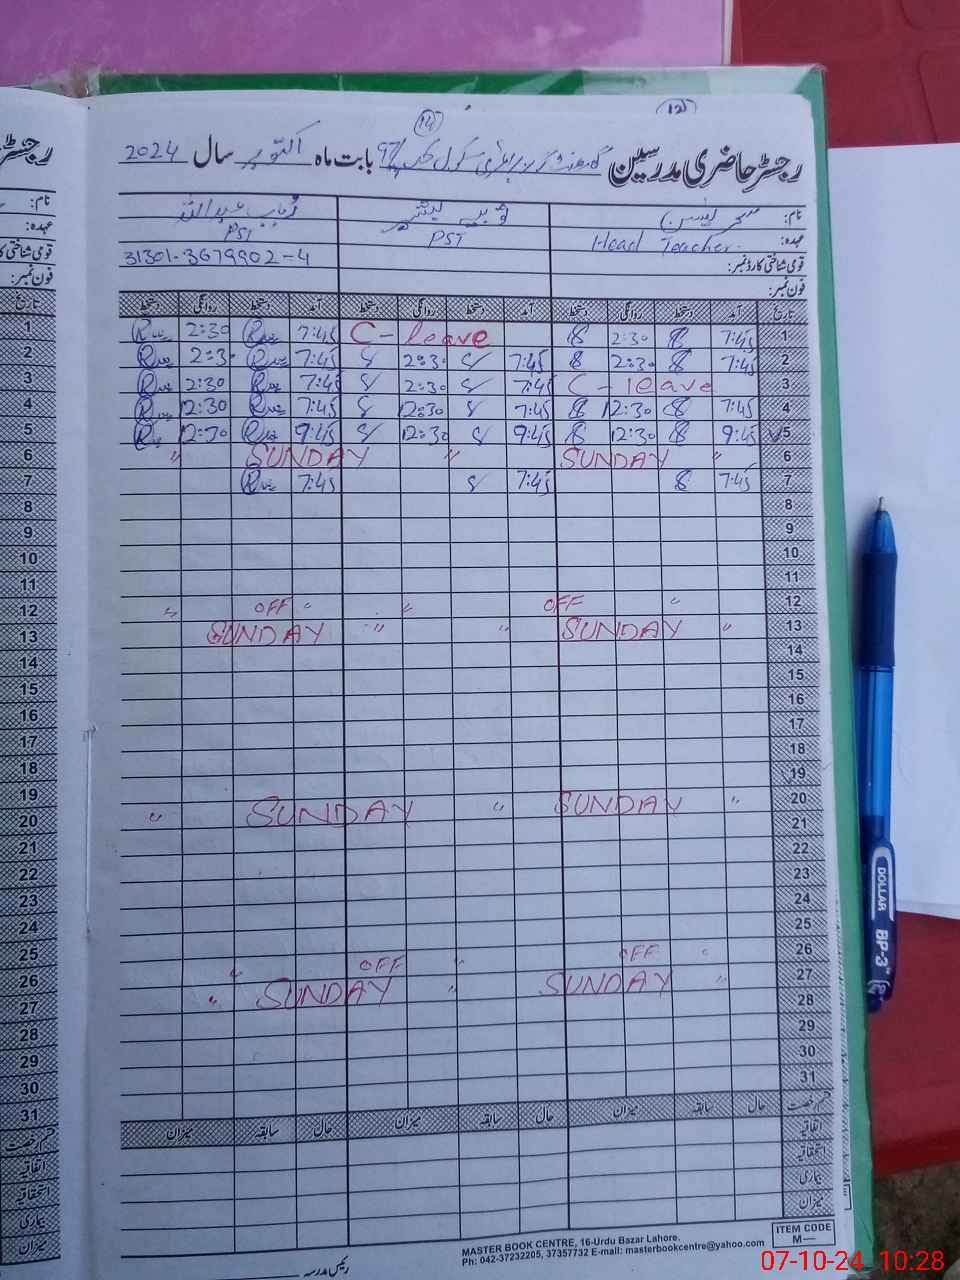 (12)
(14)
رجسٹر حاضری مدرسین گورنمنٹ گرلز پرائمری سکول بابت ماہ اکتوبر سال 2024
نام:
عہدہ: Head Teacher. PST PST
قومی شناختی کارڈ نمبر: 31301-3679902-4
فون نمبر:
تاریخ آمد دستخط روانگی دستخط آمد دستخط روانگی دستخط آمد دستخط روانگی دستخط
1 7:45 8 2:30 8 C-leave 7:45 2:30
2 7:45 8 2:30 8 7:45 2:30 7:45 2:30
3 C-leave 7:45 2:30 7:45 2:30
4 7:45 8 12:30 8 7:45 12:30 7:45 12:30
5 9:45 8 12:30 8 9:45 12:30 9:45 12:30
6 " SUNDAY " SUNDAY "
7 7:45 8 7:45 7:45
8
9
10
11
12 " OFF " " OFF "
13 " SUNDAY " " SUNDAY
14
15
16
17
18
19
20 " SUNDAY " SUNDAY "
21
22
23
24
25
26 " OFF " OFF "
27 " SUNDAY " SUNDAY "
28
29
30
31
قسم رخصت حال سابقہ میزان حال سابقہ میزان حال سابقہ میزان
اتفاقیہ
استحقاقیہ
بیماری
میزان
رئیس مدرسہ
MASTER BOOK CENTRE, 16-Urdu Bazar Lahore.
Ph: 042-37232205, 37357732 E-mail: masterbookcentre@yahoo.com
ITEM CODE
M—
DOLLAR BP-3
07-10-24 10:28